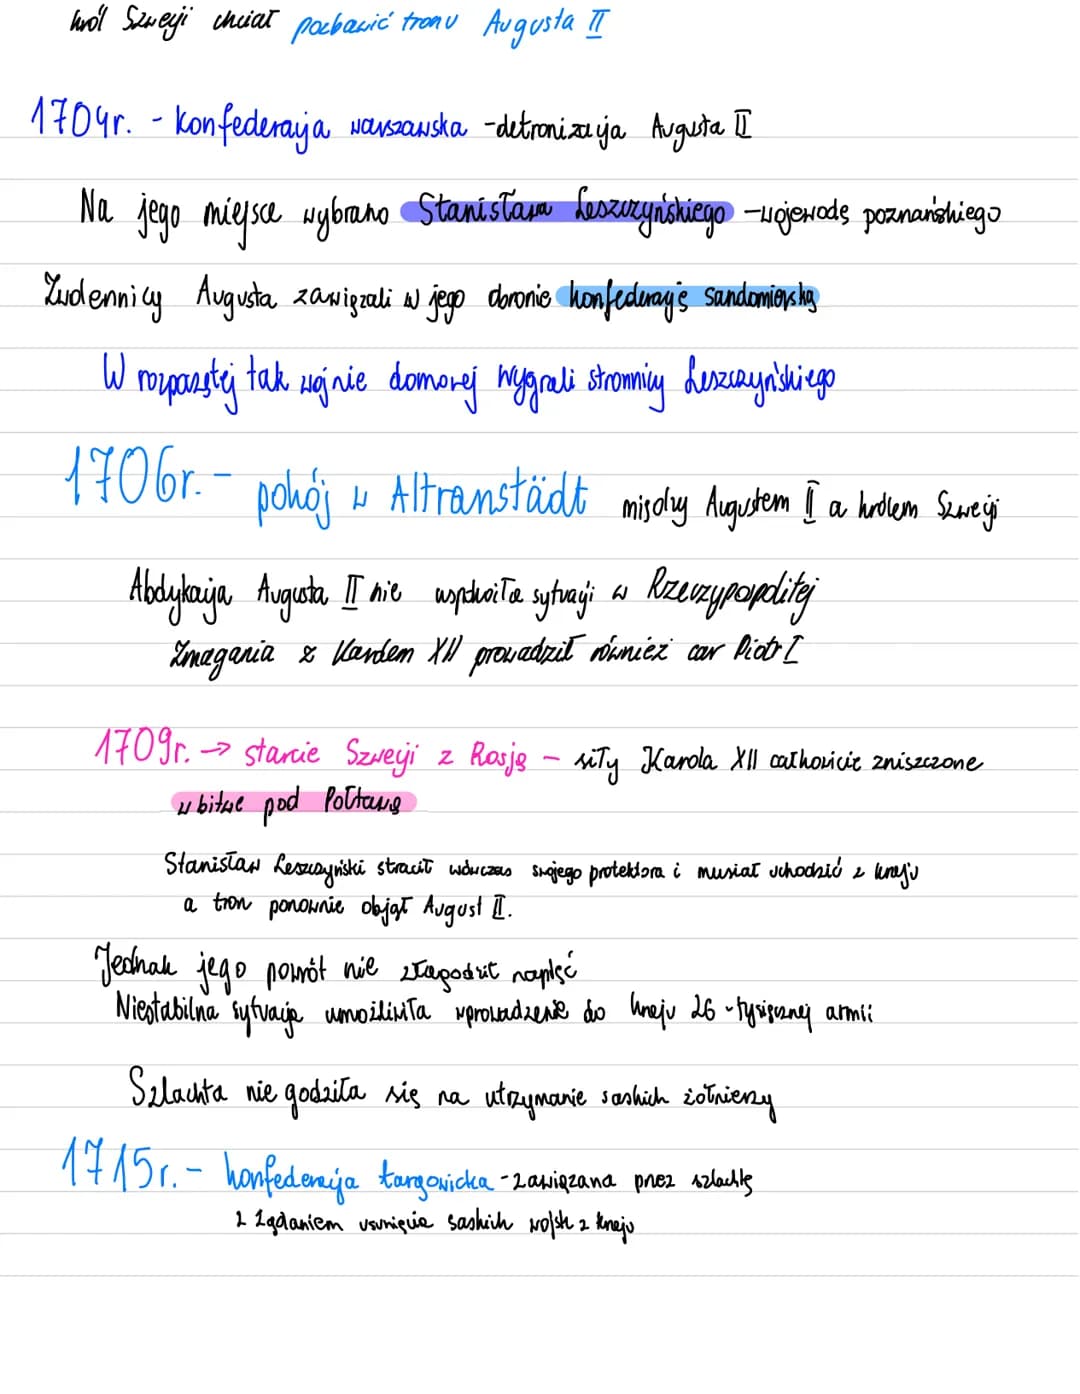 król Szwecji chciał pozbawić tronu Augusta II
1704r. - konfederacja warszawska - detronizacja Augusta II
Na jego miejsce wybrano Stanisława Leszczyńskiego - wojewodę poznańskiego
Zwolennicy Augusta zawiązali w jego obronie konfederację sandomierską
W rozpaczętej tak wojnie domowej wygrali stronnicy Leszczyńskiego
1706r. - pokój w Altranstädt między Augustem II a królem Szwecji
Abdykacja Augusta II nie uspokoiła sytuacji w Rzeczypospolitej
Zmagania z Karolem XII prowadził również car Piotr I
1709r. → starcie Szwecji z Rosją - siły Karola XII całkowicie zniszczone
w bitwie pod Połtawą
Stanisław Leszczyński stracił wówczas swojego protektora i musiał uchodzić z kraju
a tron ponownie objął August II.
Jednak jego powrót nie złagodził napięć
Niestabilna sytuacja umożliwiła wprowadzenie do kraju 26-tysięcznej armii
Szlachta nie godziła się na utrzymanie saskich żołnierzy
1715r. - konfederacja targowicka - zawiązana przez szlachtę
z żądaniem usunięcia saskich wojsk z kraju